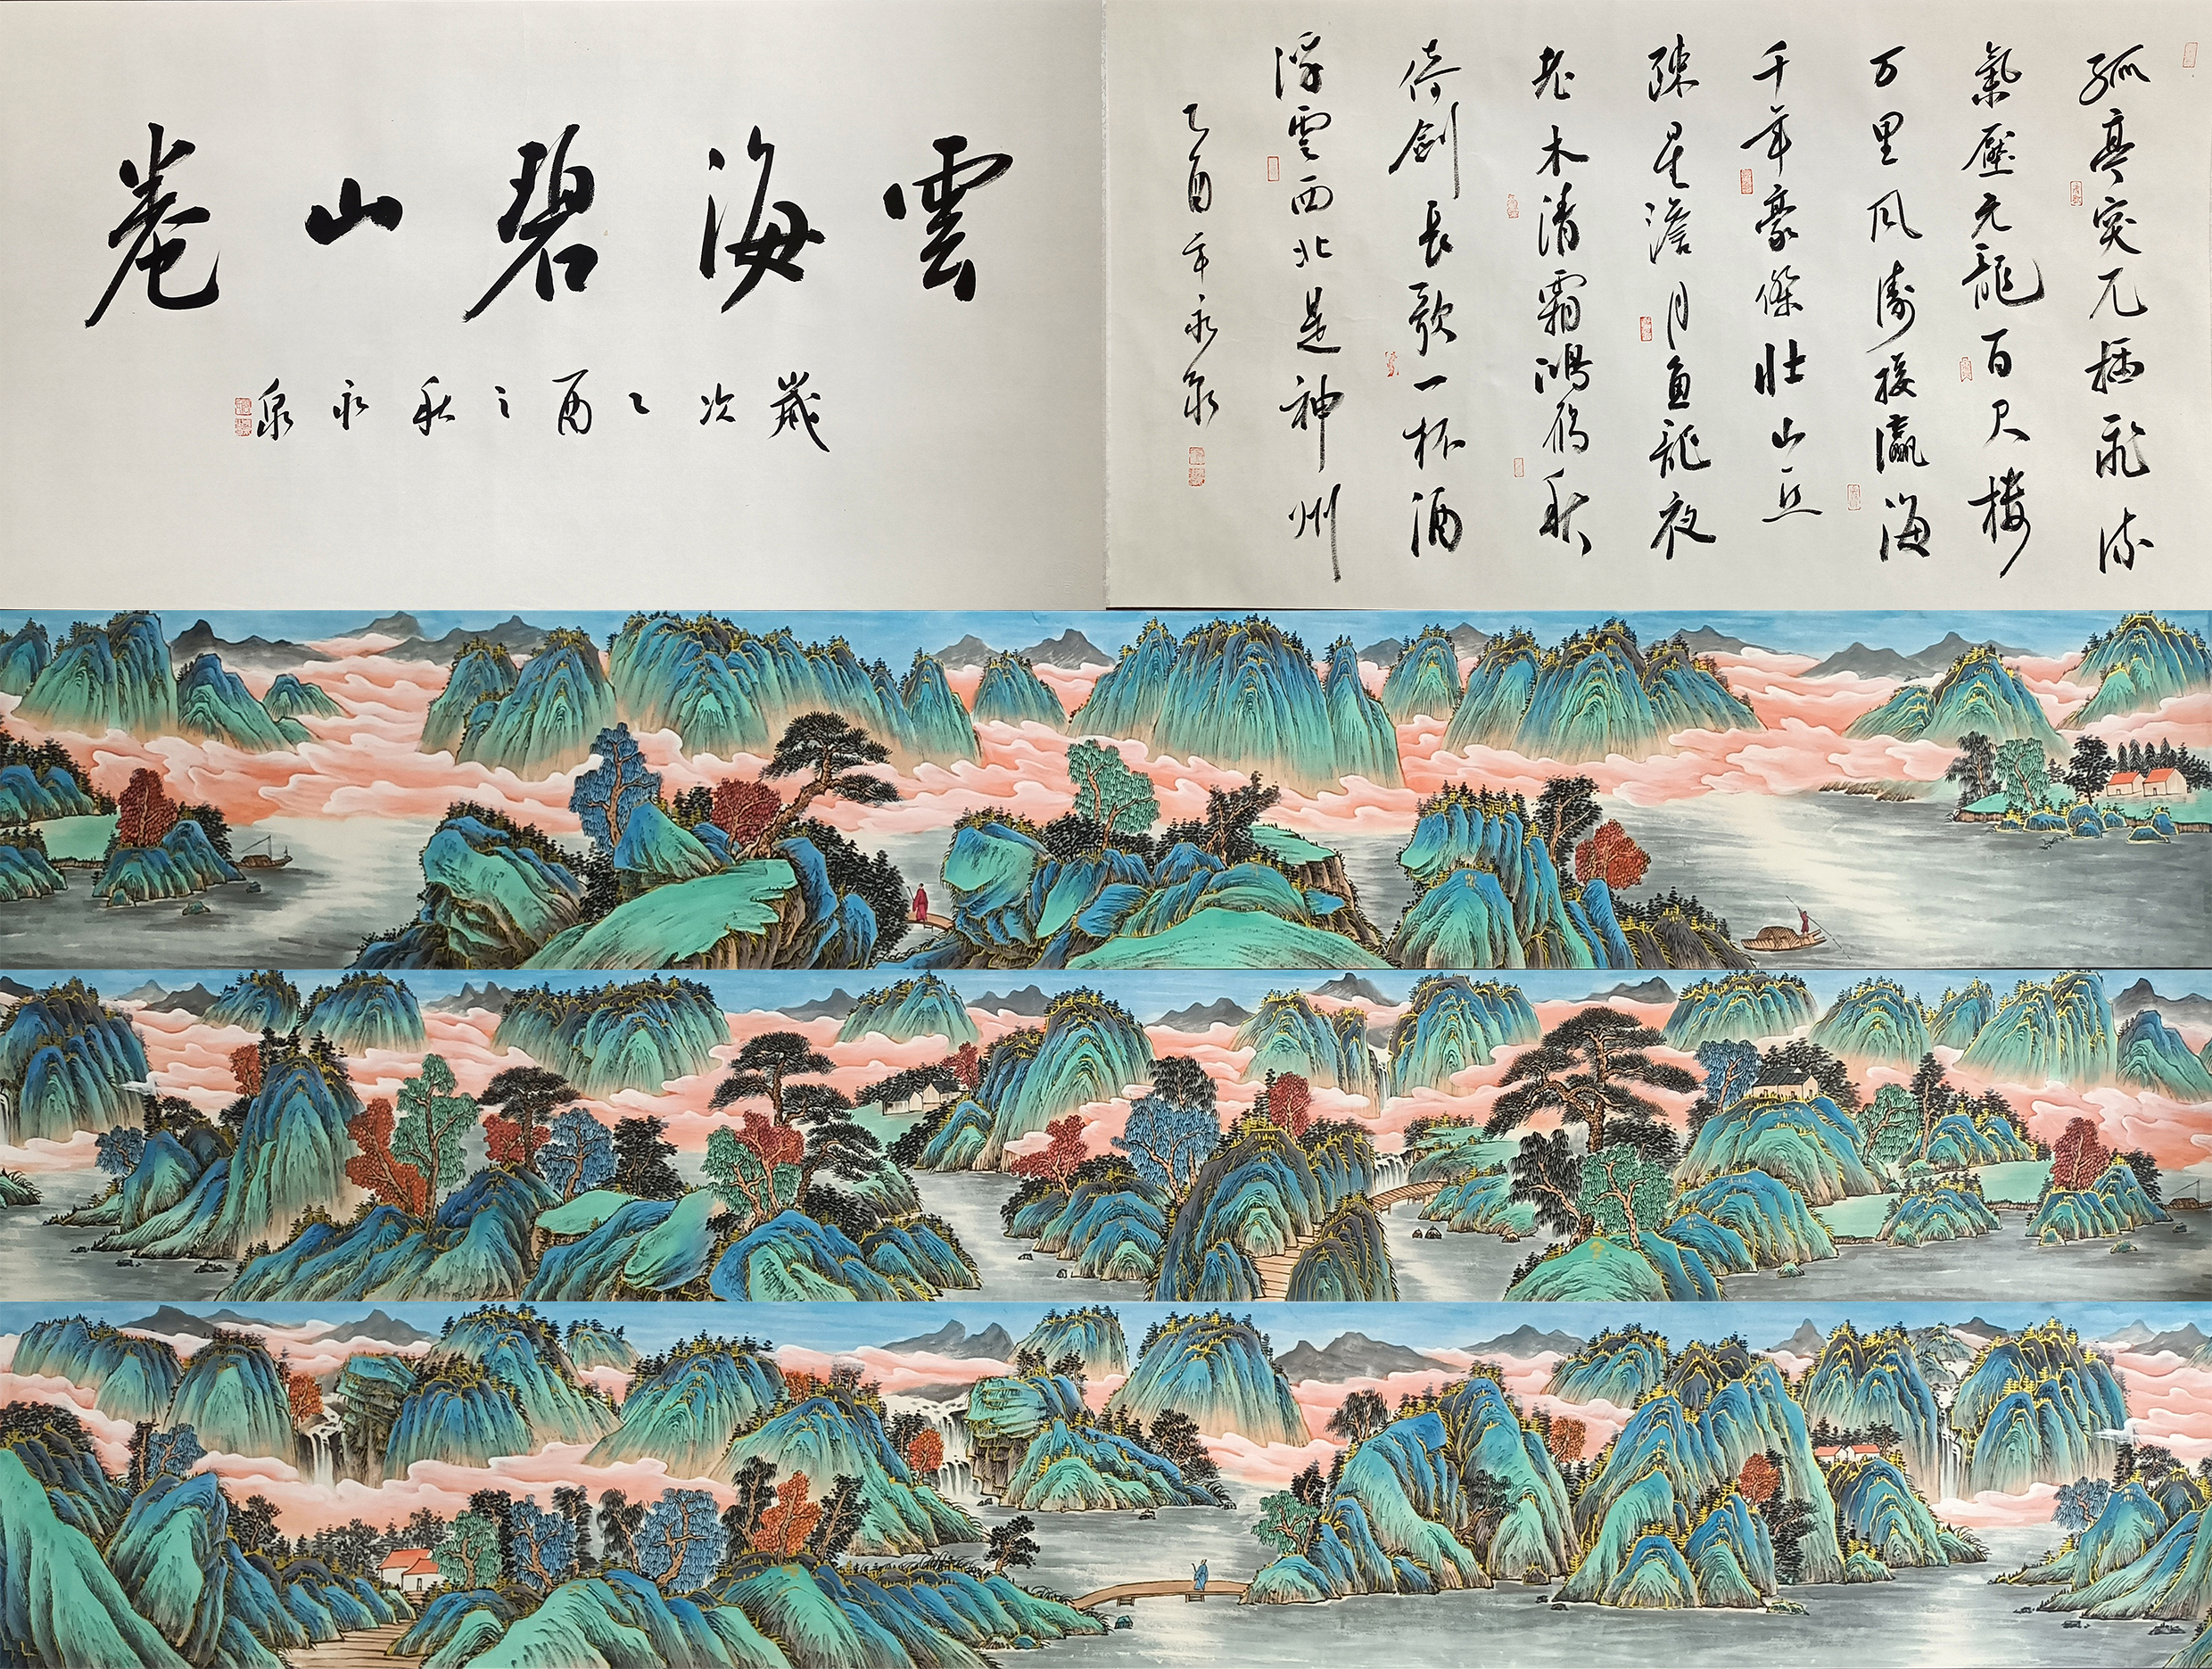 雲海碧山卷
歲次乙酉之秋永泉
孤亭突兀插飛流
氣壓元龍百尺樓
万里风濤接瀛海
千年豪傑壮山丘
疎星澹月魚龍夜
老木清霜鴻鴈秋
倚劍長歌一杯酒
浮雲西北是神州
乙酉年永泉